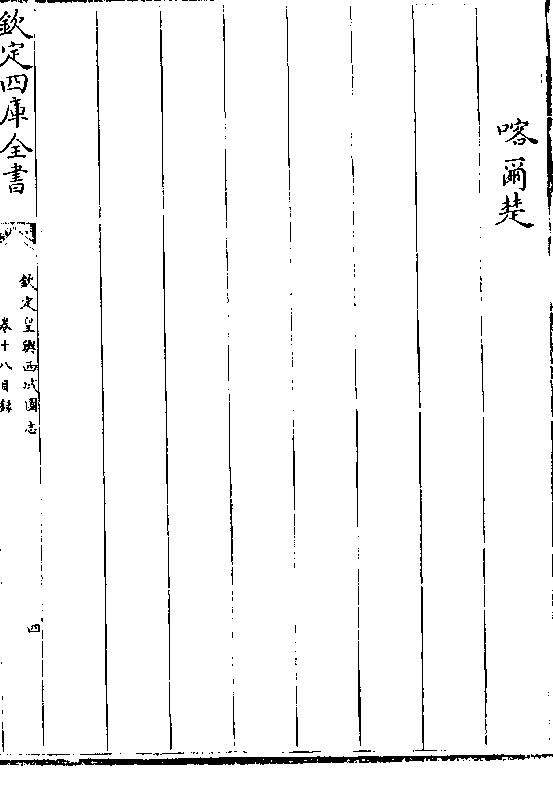 喀爾楚
欽定四庫全書
欽定皇輿西域圖志
卷十八目錄
四